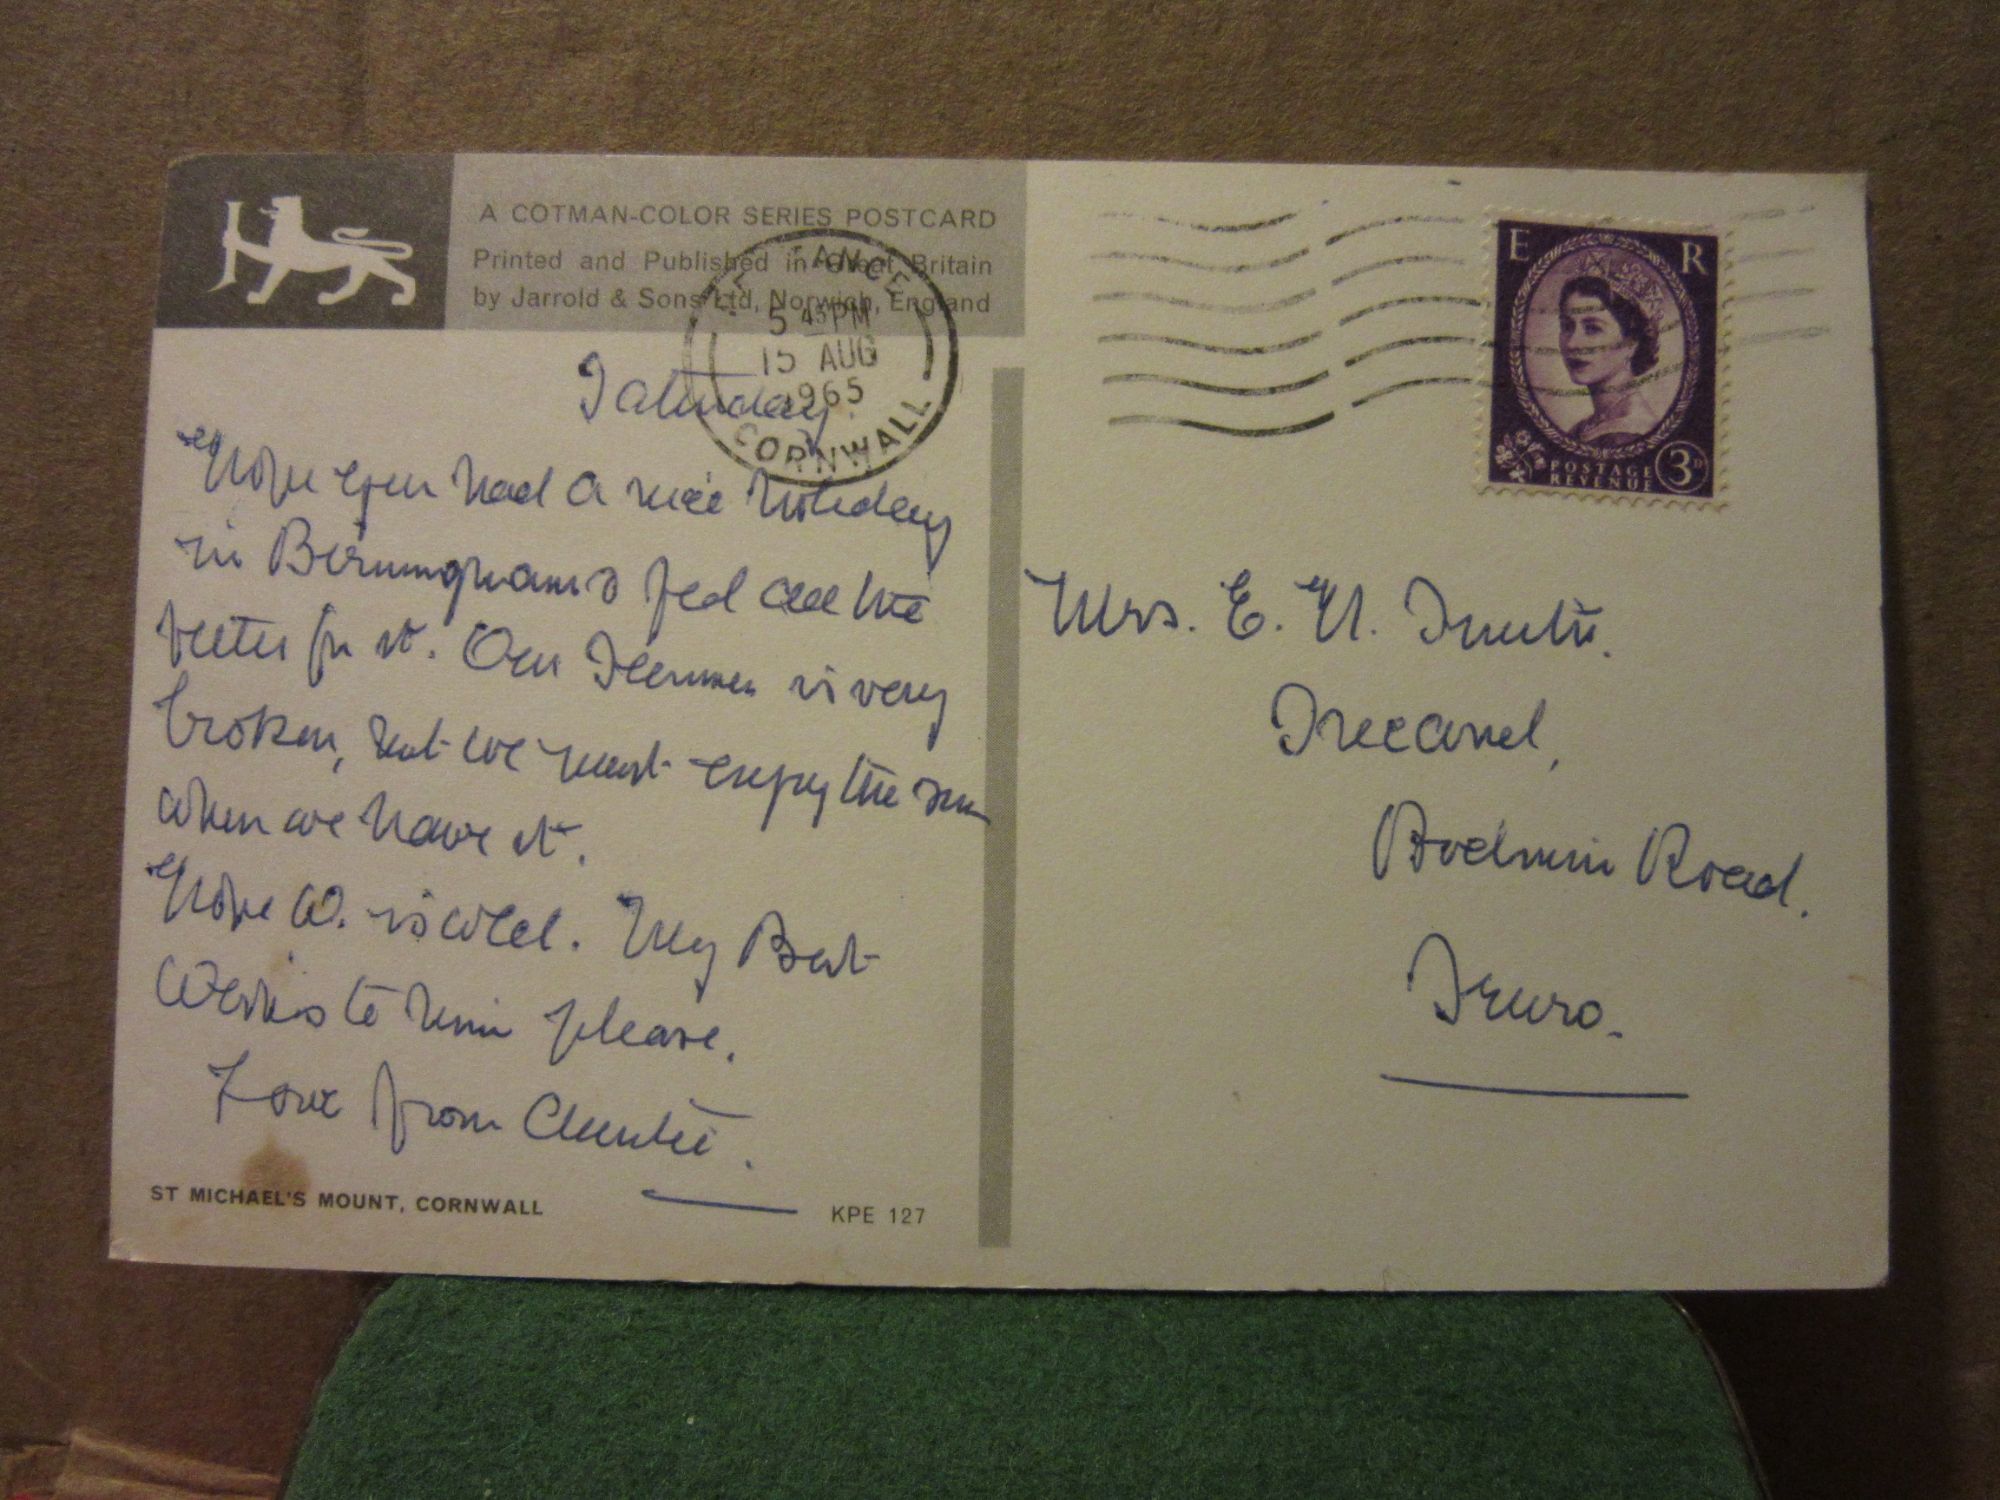 A COTMAN-COLOR SERIES POSTCARD
Printed and Published in Great Britain
by Jarrold & Sons Ltd, Norwich, England
5 45 PM
15 AUG
1965
CORNWALL
Saturday.
Hope you had a nice holiday
in Birmingham & feel all the
better for it. Our Summer is very
broken, but we must enjoy the sun
when we have it.
Hope W. is well. My Best
Wishes to him please.
Love from
ST MICHAEL'S MOUNT, CORNWALL
KPE 127
E R
POSTAGE
REVENUE
3D
Mrs. E. N.
Bodmin Road.
Truro.